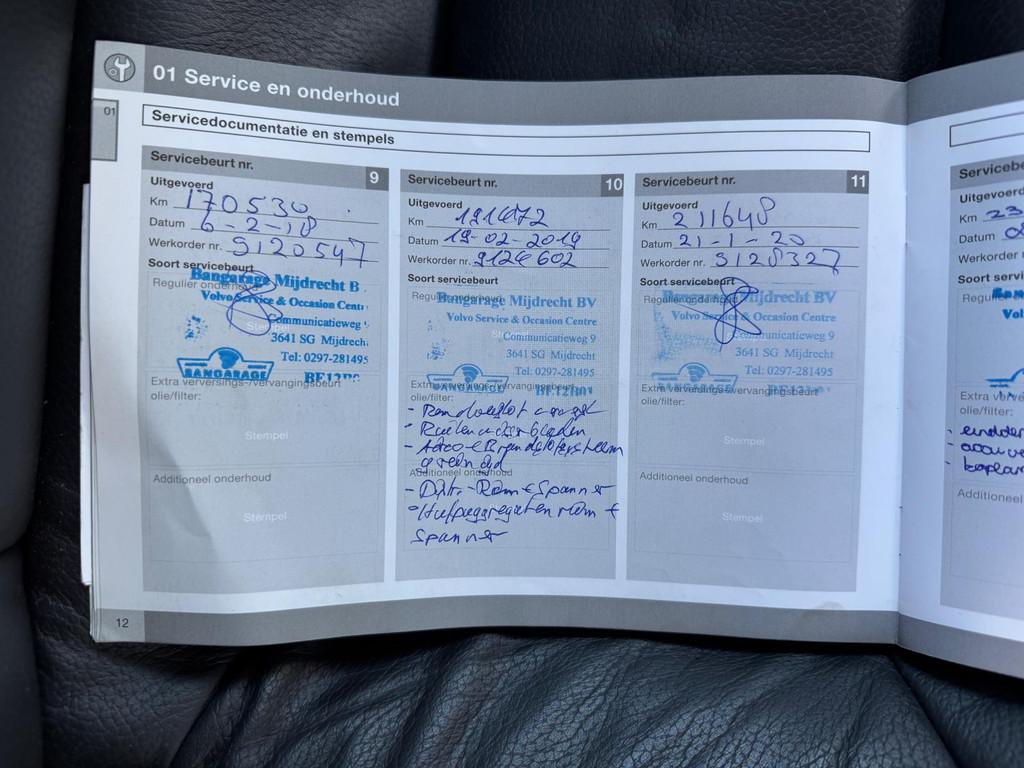 01 Service en onderhoud
01
Servicedocumentatie en stempels
Servicebeurt nr. 9
Uitgevoerd
Km 170530
Datum 6-2-18
Werkorder nr. 9120547
Soort servicebeurt
Regulier onderhoud
Bangarage Mijdrecht B
Volvo Service & Occasion Centr
Communicatieweg
3641 SG Mijdrech
Tel: 0297-281495
BANGARAGE
Extra verversings-/vervangingsbeurt
olie/filter:
Stempel
Additioneel onderhoud
Stempel
Servicebeurt nr. 10
Uitgevoerd
Km
Datum 19-02-2019
Werkorder nr. 9124602
Soort servicebeurt
Regulier onderhoud
Stempel
Bangarage Mijdrecht BV
Volvo Service & Occasion Centre
Communicatieweg 9
3641 SG Mijdrecht
Tel: 0297-281495
BANGARAGE
Extra verversings-/vervangingsbeurt
olie/filter:
- Ruitenwisserbladen
Additioneel onderhoud
- Distr.-Riem + Spanner
- Hulpaggregaten riem +
Spanner
Servicebeurt nr. 11
Uitgevoerd
Km 211648
Datum 21-1-20
Werkorder nr. 9128327
Soort servicebeurt
Regulier onderhoud
Mijdrecht BV
Volvo Service & Occasion Centre
Communicatieweg 9
3641 SG Mijdrecht
Tel: 0297-281495
BANGARAGE
Extra verversings-/vervangingsbeurt
olie/filter:
Stempel
Additioneel onderhoud
Stempel
Serviceb
Uitgevoerd
Km 23
Datum
Werkorder
Soort servi
Regulie
Vol
Extra verve
olie/filter:
Additioneel
12